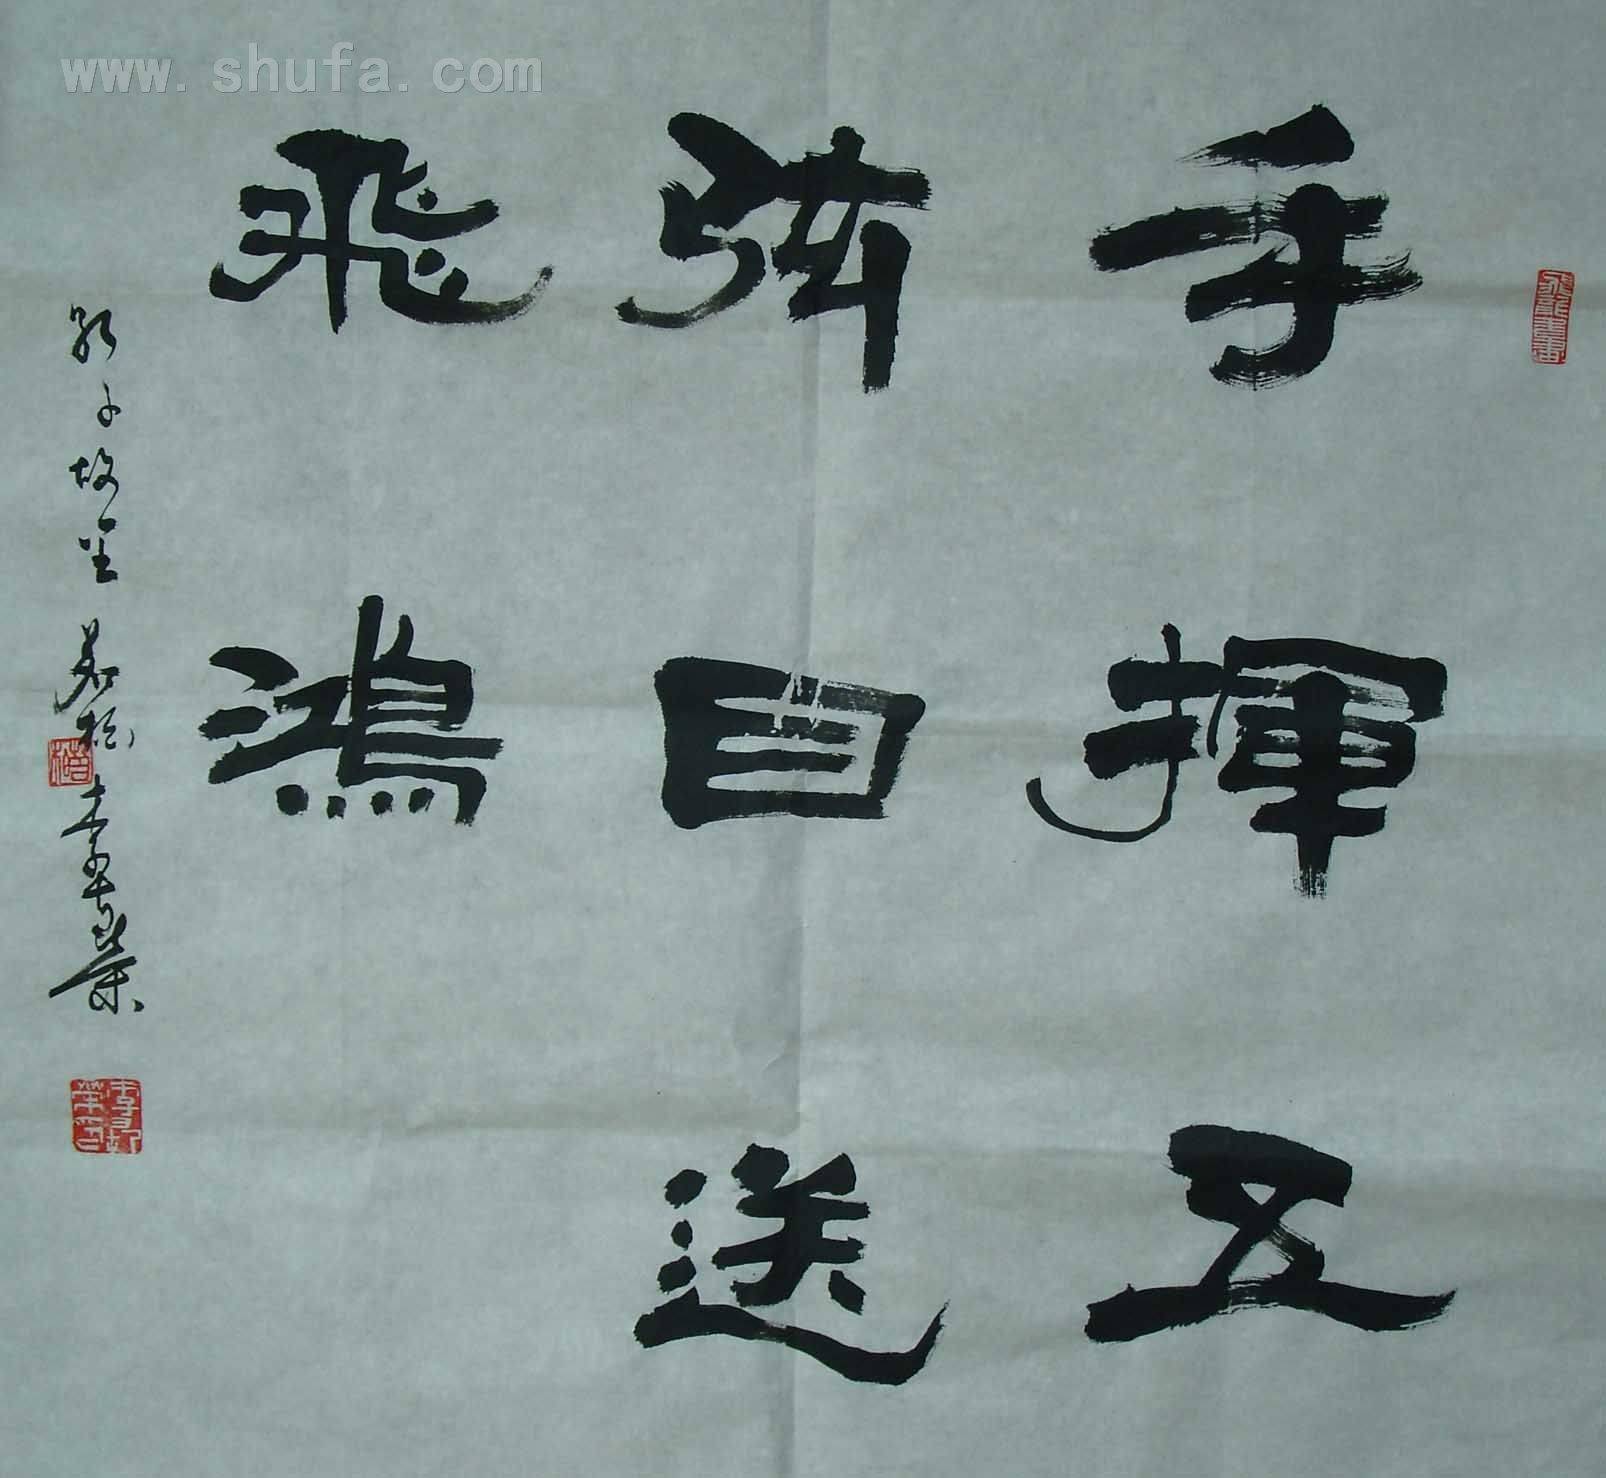 www.shufa.com
手揮五
弦目送
飛鴻
子故里